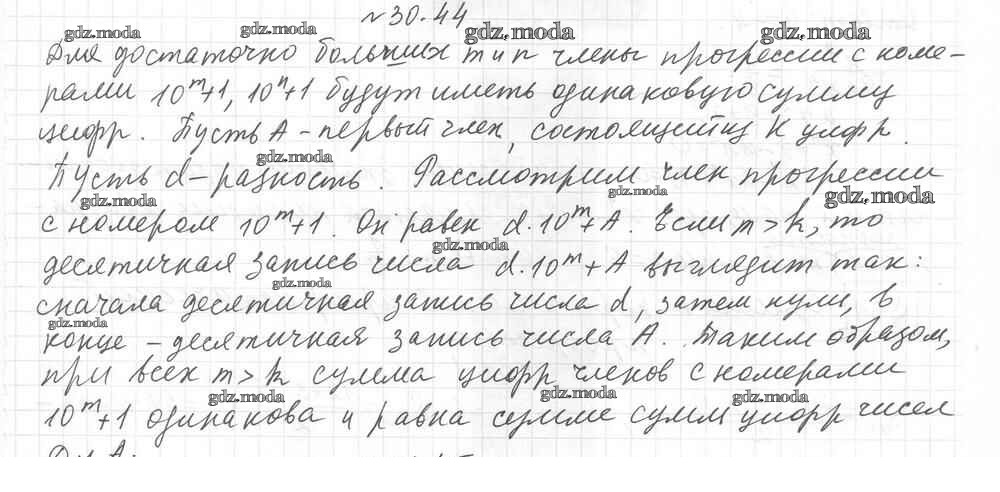 №30.44
Для достаточно больших m и n члены прогрессии с номе-
рами 10^m+1, 10^n+1 будут иметь одинаковую сумму
цифр. Пусть A – первый член, состоящий из K цифр.
Пусть d – разность. Рассмотрим член прогрессии
с номером 10^m+1. Он равен d·10^m+A. Если m>k, то
десятичная запись числа d·10^m+A выглядит так:
сначала десятичная запись числа d, затем нули, в
конце – десятичная запись числа A. Таким образом,
при всех m>k сумма цифр членов с номерами
10^m+1 одинакова и равна сумме сумм цифр чисел
gdz.moda
gdz.moda
gdz.moda
gdz.moda
gdz.moda
gdz.moda
gdz.moda
gdz.moda
gdz.moda
gdz.moda
gdz.moda
gdz.moda
gdz.moda
gdz.moda